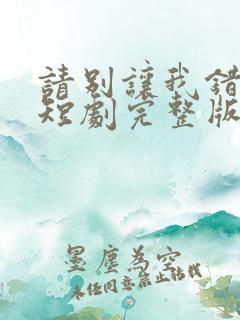 請別讓我錯
短劇完整版
墨塵為空
未经同意禁止转载